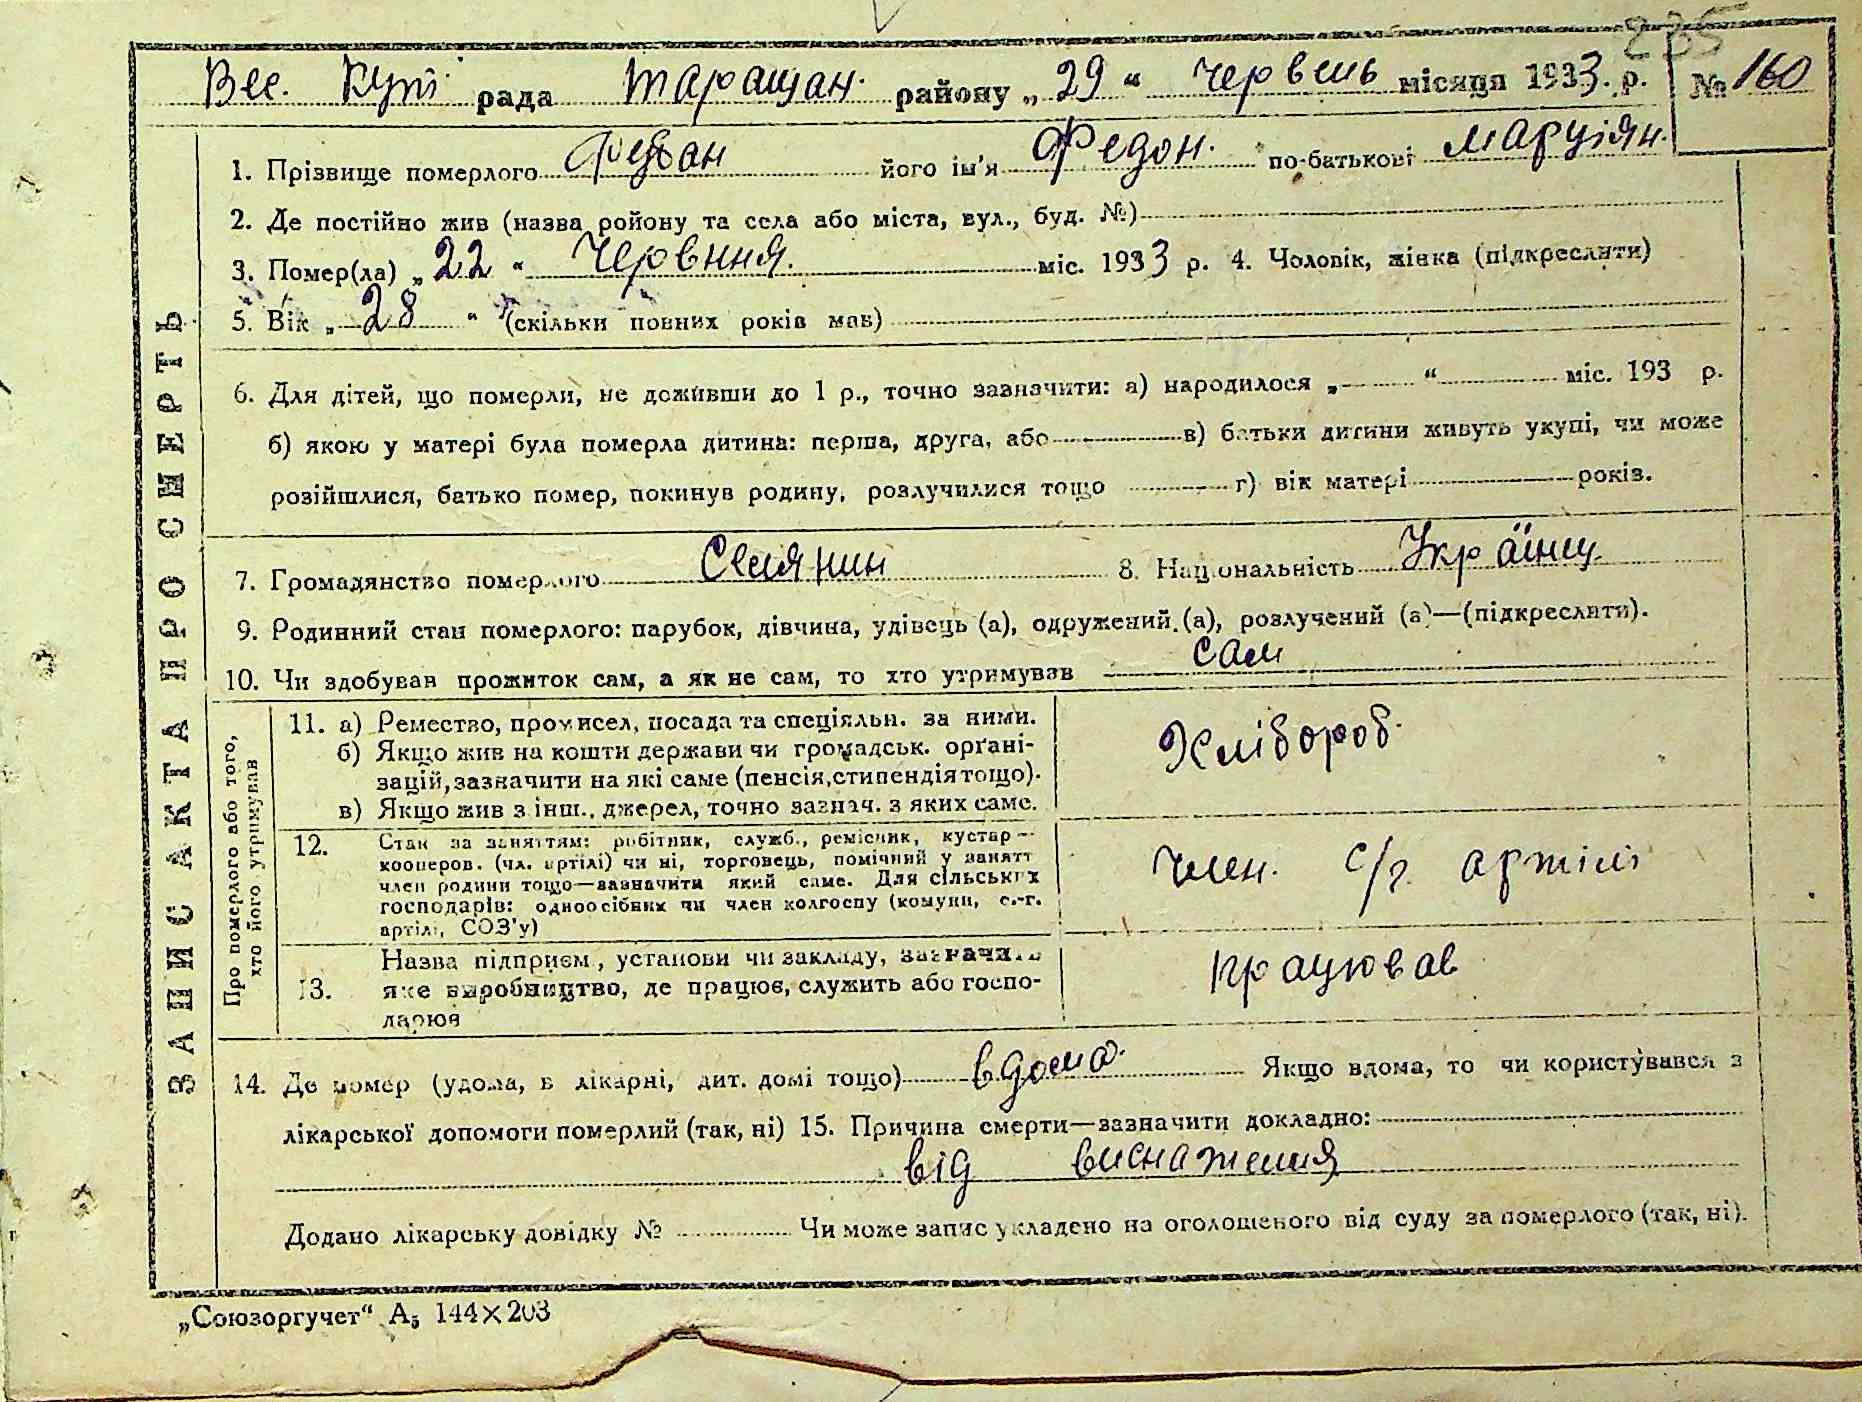 235
Вес. Кут. рада Таращан. району „29“ червень місяця 1933. р. № 160
1. Прізвище померлого його ім'я Федон. по-батькові Марціян.
2. Де постійно жив (назва ройону та села або міста, вул., буд. №)
3. Помер(ла) „22“ Червння. міс. 1933 р. 4. Чоловік, жінка (підкреслити)
5. Вік „28“ (скільки повних років мав)
6. Для дітей, що померли, не доживши до 1 р., точно зазначити: а) народилося „ “ міс. 193 р.
б) якою у матері була померла дитина: перша, друга, або в) батьки дитини живуть укупі, чи може
розійшлися, батько помер, покинув родину, розлучилися тощо г) вік матері років.
7. Громадянство померлого Селянин 8. Національність Україінц.
9. Родинний стан померлого: парубок, дівчина, удівець (а), одружений (а), розлучений (а)—(підкреслити).
10. Чи здобував прожиток сам, а як не сам, то хто утримував сам
ЗАПИС АКТА ПРО СМЕРТЬ
Про померлого або того,
хто його утримував
11. а) Ремество, промисел, посада та спеціяльн. за ними.
б) Якщо жив на кошти держави чи громадськ. орґані-
зацій, зазначити на які саме (пенсія, стипендія тощо).
в) Якщо жив з інш., джерел, точно зазнач. з яких саме.
Хлібороб.
12. Стан за заняттям: робітник, служб., ремісник, кустар—
кооперов. (чл. артілі) чи ні, торговець, помічний у занятт
член родини тощо—зазначити який саме. Для сільських
господарів: одноосібник чи член колгоспу (комуни, с.-г.
артілі, СОЗ'у)
член. с/г. артілі
13. Назва підприєм, установи чи закладу, зазначить
яке виробництво, де працює, служить або госпо-
дарює
працював
14. Де помер (удома, в лікарні, дит. домі тощо) вдома. Якщо вдома, то чи користувався з
лікарської допомоги померлий (так, ні) 15. Причина смерти—зазначити докладно:
від виснаження
Додано лікарську довідку № Чи може запис укладено на оголошеного від суду за померлого (так, ні).
„Союзоргучет“ А₅ 144×203